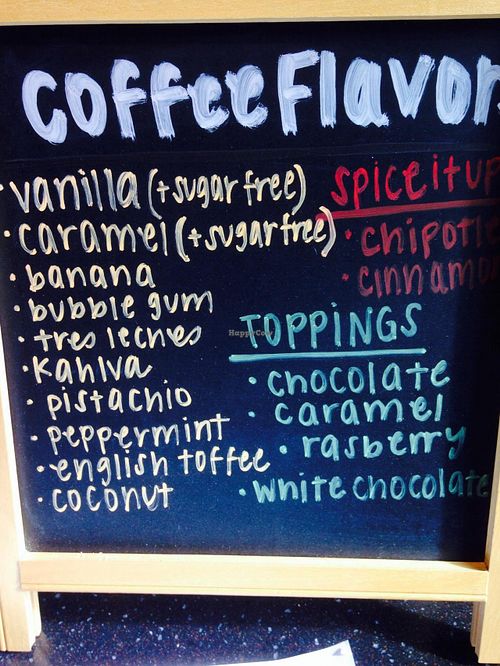 coffee Flavor
• vanilla (+ sugar free)
• caramel (+ sugar free)
• banana
• bubble gum
• tres leches
• Kahlva
• pistachio
• peppermint
• english toffee
• coconut
spice it up
• chipotle
• cinnamon
TOPPINGS
• chocolate
• caramel
• rasberry
• white chocolate
HappyCow